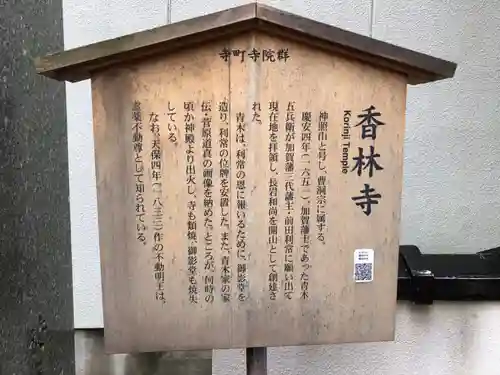 寺町寺院群
香林寺
Korinji Temple
神照山と号し、曹洞宗に属する。
慶安四年(一六五一)、加賀藩士であった青木
五兵衛が加賀藩三代藩主・前田利常に願い出て
現在地を拝領し、長岩和尚を開山として創建さ
れた。
青木は、利常の恩に報いるために、御影堂を
造り、利常の位牌を安置した。また、青木家の家
伝、菅原道真の画像を納めた。ところが、何時の
頃か神殿より出火し、寺も類焼、御影堂も焼失
している。
なお、天保四年(一八三三)作の不動明王は、
願不動尊として知られている。